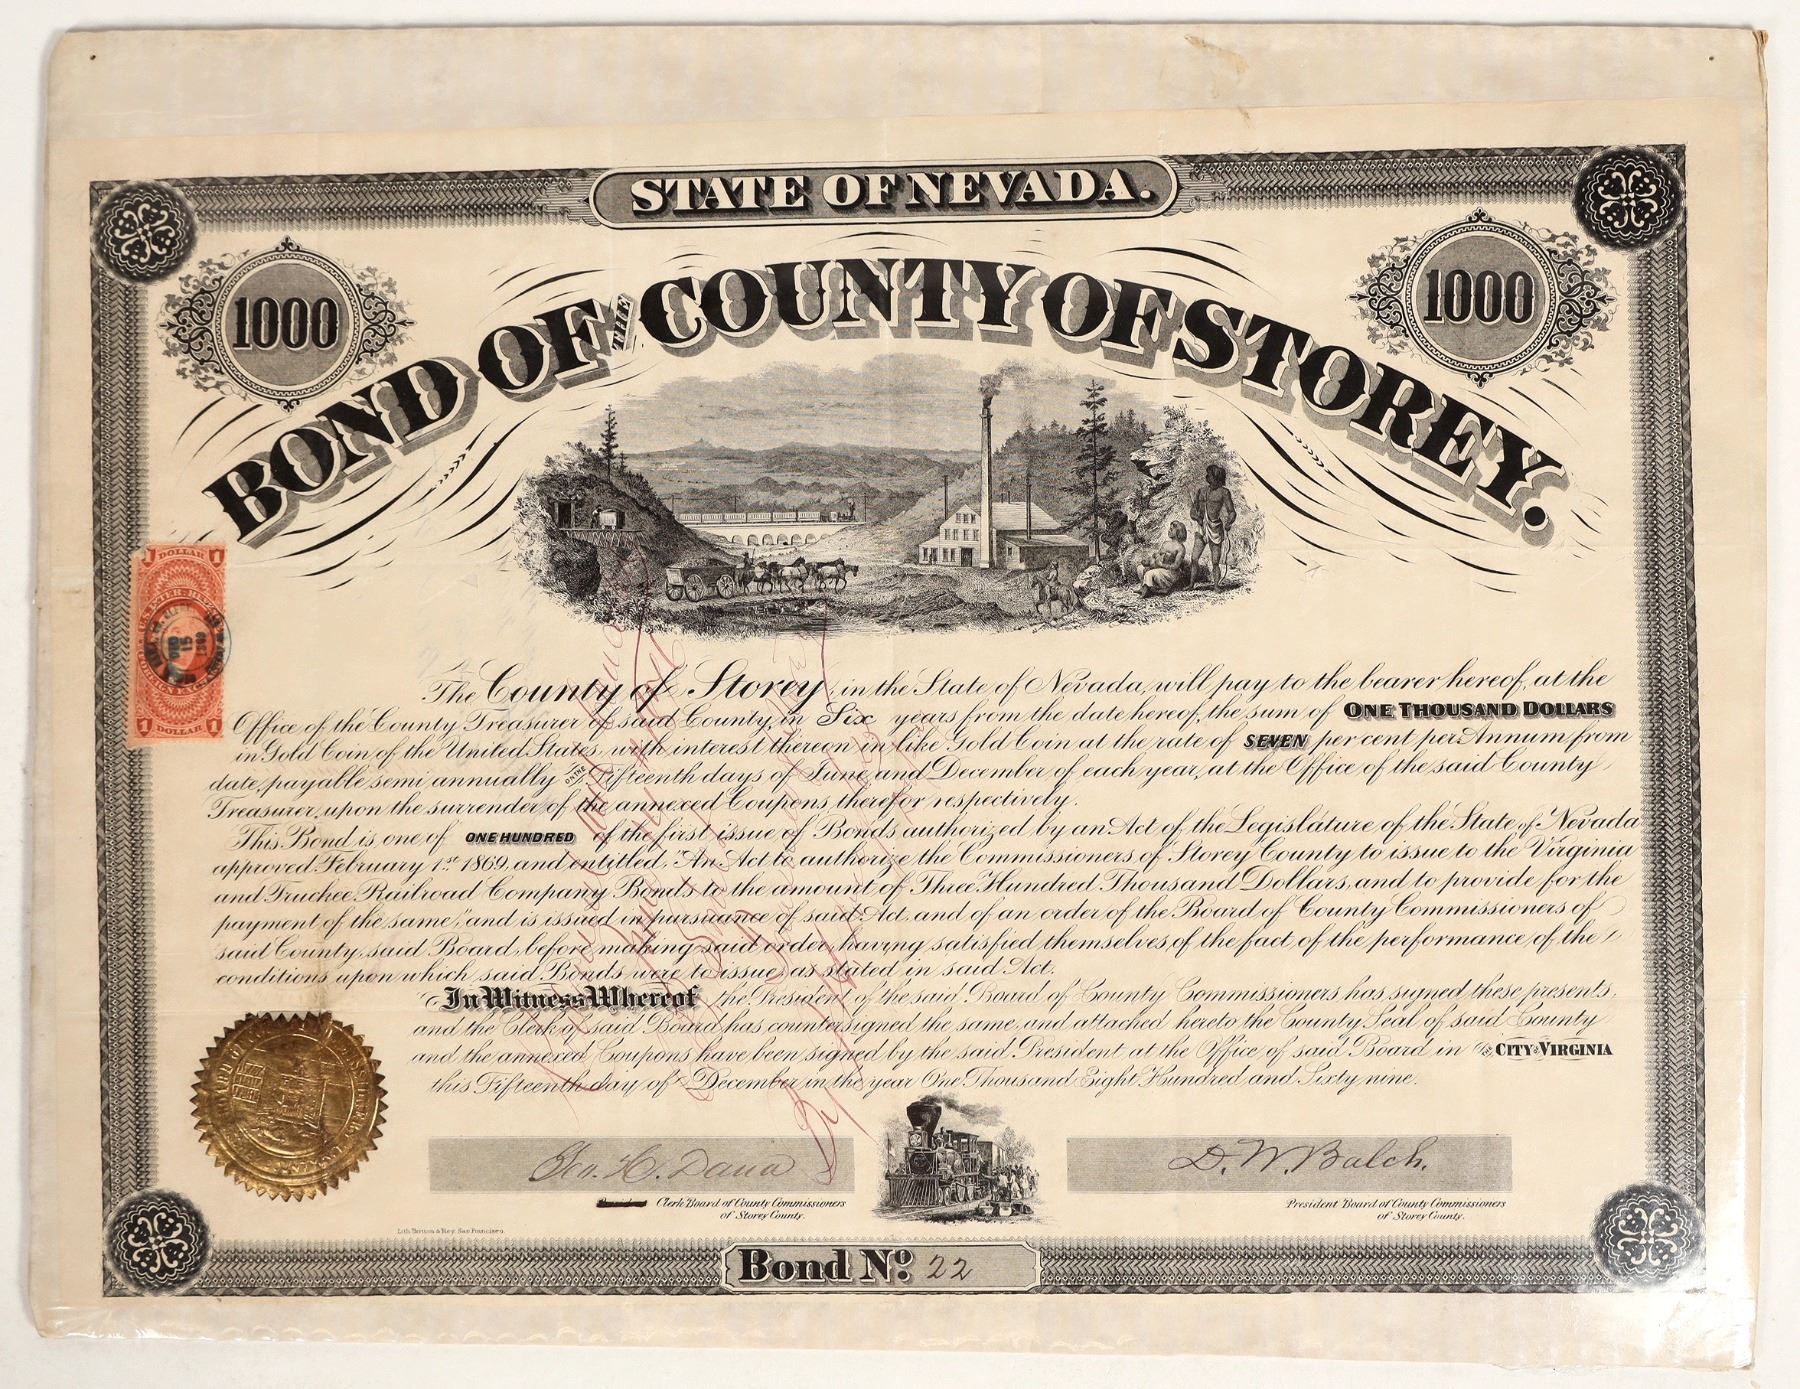 STATE OF NEVADA.
1000
1000
BOND OF THE COUNTY OF STOREY.
1 DOLLAR 1
U.S. INTER. REV.
FOREIGN EXCHANGE
1 DOLLAR 1
The County of Storey, in the State of Nevada, will pay to the bearer hereof, at the
Office of the County Treasurer of said County, in Six years from the date hereof, the sum of ONE THOUSAND DOLLARS
in Gold Coin of the United States, with interest thereon in like Gold Coin at the rate of SEVEN per cent per Annum from
date, payable semi annually on the Fifteenth days of June and December of each year, at the Office of the said County
Treasurer, upon the surrender of the annexed Coupons therefor respectively.
This Bond is one of ONE HUNDRED of the first issue of Bonds authorized by an Act of the Legislature of the State of Nevada
approved February 1st 1869, and entitled, "An Act to authorize the Commissioners of Storey County to issue to the Virginia
and Truckee Railroad Company Bonds to the amount of Three Hundred Thousand Dollars, and to provide for the
payment of the same," and is issued in pursuance of said Act, and of an order of the Board of County Commissioners of
said County, said Board, before making said order, having satisfied themselves of the fact of the performance of the
conditions upon which said Bonds were to issue, as stated in said Act.
In Witness Whereof the President of the said Board of County Commissioners has signed these presents,
and the Clerk of said Board has countersigned the same, and attached hereto the County Seal of said County
and the annexed Coupons have been signed by the said President at the Office of said Board in the CITY OF VIRGINIA
this Fifteenth day of December in the year One Thousand Eight Hundred and Sixty nine.
Geo. H. Dana
D. W. Balch.
Clerk Board of County Commissioners
of Storey County.
President Board of County Commissioners
of Storey County.
Lith. Britton & Rey. San Francisco
Bond No. 22